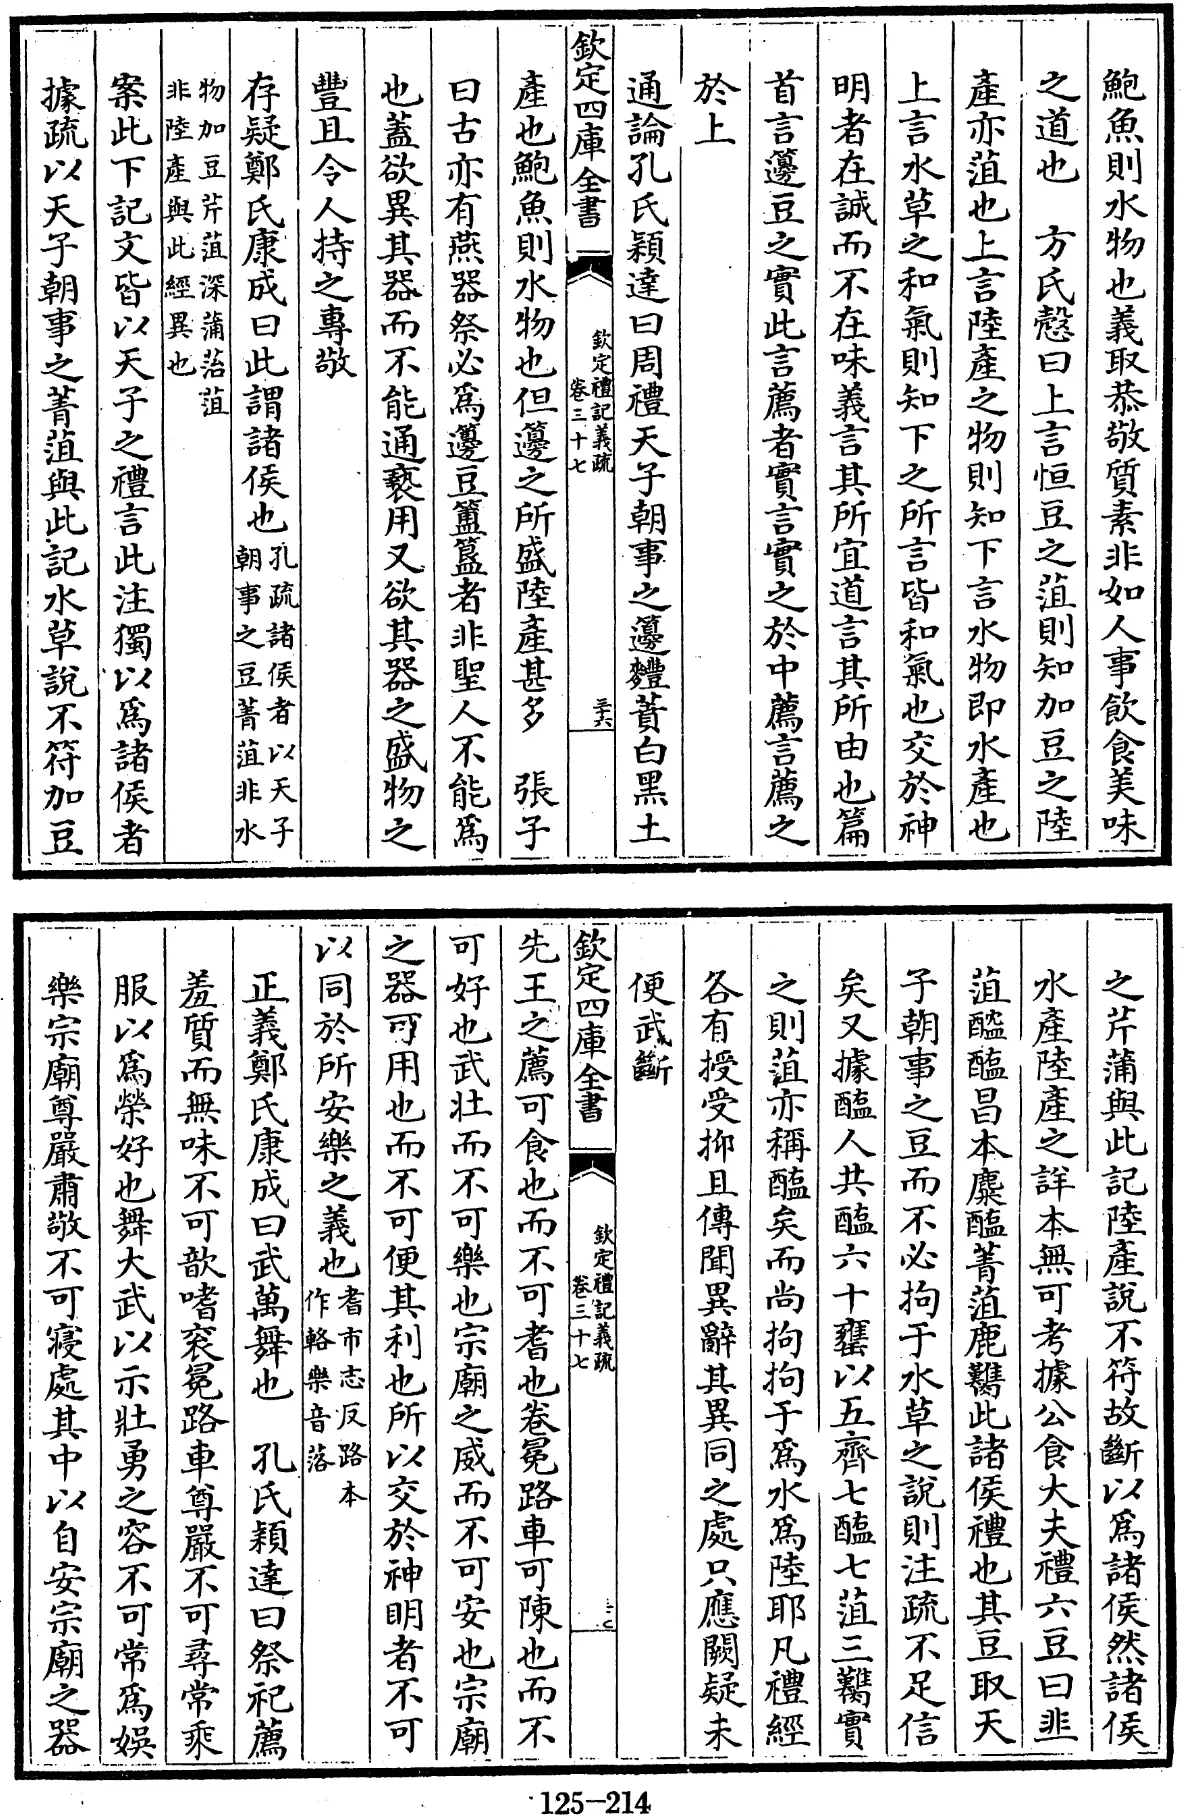 鮑魚則水物也義取恭敬質素非如人事飲食美味
之道也　方氏慤曰上言恒豆之菹則知加豆之陸
產亦菹也上言陸產之物則知下言水物即水產也
上言水草之和氣則知下之所言皆和氣也交於神
明者在誠而不在味義言其所宜道言其所由也篇
首言籩豆之實此言薦者實言實之於中薦言薦之
於上
通論孔氏穎達曰周禮天子朝事之籩麷蕡白黑土
欽定四庫全書
欽定禮記義疏
卷三十七
三十六
產也鮑魚則水物也但籩之所盛陸產甚多　張子
曰古亦有燕器祭必為籩豆簠簋者非聖人不能為
也蓋欲異其器而不能通褻用又欲其器之盛物之
豐且令人持之專敬
存疑鄭氏康成曰此謂諸侯也孔疏諸侯者以天子
朝事之豆菁菹非水
物加豆芹菹深蒲菭菹
非陸產與此經異也
案此下記文皆以天子之禮言此注獨以為諸侯者
據疏以天子朝事之菁菹與此記水草說不符加豆
之芹蒲與此記陸產說不符故斷以為諸侯然諸侯
水產陸產之詳本無可考據公食大夫禮六豆曰韭
菹醓醢昌本麋醢菁菹鹿臡此諸侯禮也其豆取天
子朝事之豆而不必拘于水草之說則注疏不足信
矣又據醢人共醢六十罋以五齊七醢七菹三臡實
之則菹亦稱醢矣而尚拘拘于為水為陸耶凡禮經
各有授受抑且傳聞異辭其異同之處只應闕疑未
便武斷
欽定四庫全書
欽定禮記義疏
卷三十七
先王之薦可食也而不可耆也卷冕路車可陳也而不
可好也武壯而不可樂也宗廟之威而不可安也宗廟
之器可用也而不可便其利也所以交於神明者不可
以同於所安樂之義也耆市志反路本
作輅樂音落
正義鄭氏康成曰武萬舞也　孔氏穎達曰祭祀薦
羞質而無味不可歆嗜衮冕路車尊嚴不可尋常乘
服以為榮好也舞大武以示壯勇之容不可常為娛
樂宗廟尊嚴肅敬不可寢處其中以自安宗廟之器
125-214